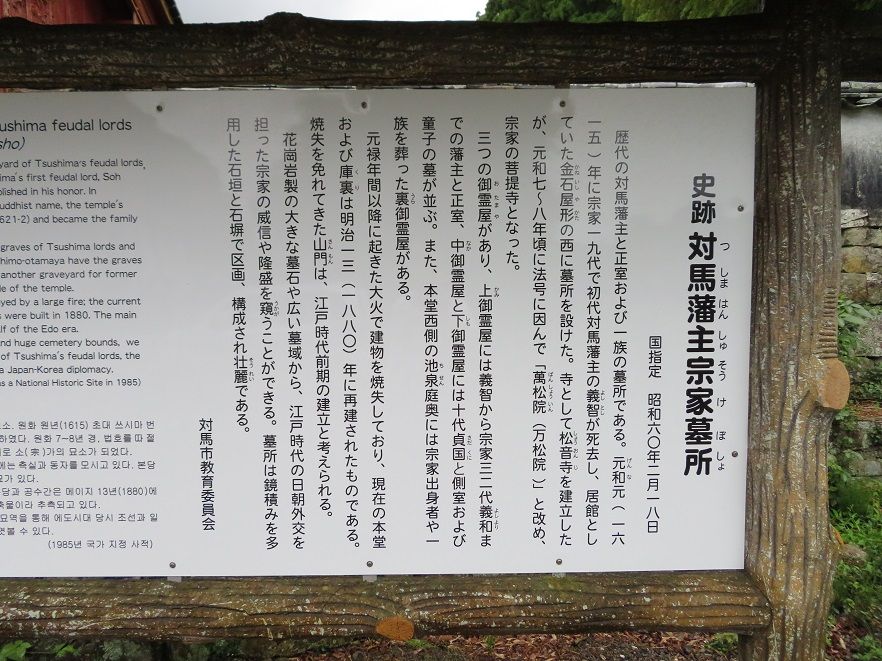 史跡 対馬藩主宗家墓所
国指定 昭和六〇年二月一八日
歴代の対馬藩主と正室および一族の墓所である。元和元(一六
一五)年に宗家一九代で初代対馬藩主の義智が死去し、居館とし
ていた金石屋形の西に墓所を設けた。寺として松音寺を建立した
が、元和七~八年頃に法号に因んで「萬松院(万松院)」と改め、
宗家の菩提寺となった。
三つの御霊屋があり、上御霊屋には義智から宗家三二代義和ま
での藩主と正室、中御霊屋と下御霊屋には十代貞国と側室および
童子の墓が並ぶ。また、本堂西側の池泉庭奥には宗家出身者や一
族を葬った裏御霊屋がある。
元禄年間以降に起きた大火で建物を焼失しており、現在の本堂
および庫裏は明治一三(一八八〇)年に再建されたものである。
焼失を免れてきた山門は、江戸時代前期の建立と考えられる。
花崗岩製の大きな墓石や広い墓域から、江戸時代の日朝外交を
担った宗家の威信や隆盛を窺うことができる。墓所は鏡積みを多
用した石垣と石塀で区画、構成され壮麗である。
対馬市教育委員会
ushima feudal lords
sho)
yard of Tsushima's feudal lords,
ima's first feudal lord, Soh
blished in his honor. In
uddhist name, the temple's
621-2) and became the family
graves of Tsushima lords and
himo-otamaya have the graves
another graveyard for former
le of the temple.
yed by a large fire; the current
s were built in 1880. The main
lf of the Edo era.
and huge cemetery bounds, we
of Tsushima's feudal lords, the
a Japan-Korea diplomacy.
as a National Historic Site in 1985)
소. 원화 원년(1615) 초대 쓰시마 번
하였다. 원화 7~8년 경, 법호를 따 절
로 소(宗)가의 묘소가 되었다.
에는 측실과 동자를 모시고 있다. 본당
묘가 있다.
당과 공수간은 메이지 13년(1880)에
축물이라 추측되고 있다.
묘역을 통해 에도시대 당시 조선과 일
엿볼 수 있다.
(1985년 국가 지정 사적)